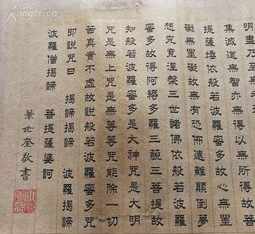 明盡乃至無
集滅道無智亦無得以無所得故菩
提薩埵依般若波羅蜜多故心無罣
礙無罣礙故無有恐怖遠離顛倒夢
想究竟涅槃三世諸佛依般若波羅
蜜多故得阿耨多羅三藐三菩提故
知般若波羅蜜多是大神咒是大明
咒是無上咒是無等等咒能除一切
苦真實不虛故說般若波羅蜜多咒
即說咒曰 揭諦揭諦 波羅揭諦
波羅僧揭諦 菩提薩婆訶
華世奎敬書